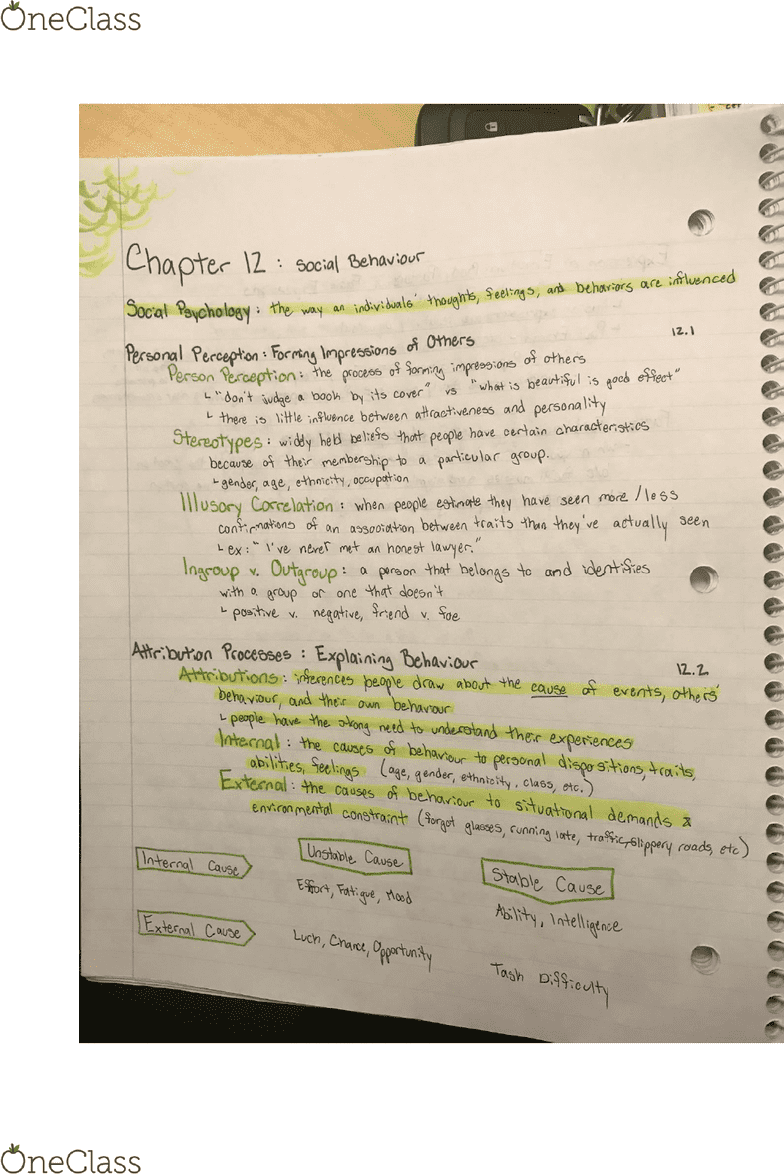 OneClass
Chapter 12 : Social Behaviour
Social Psychology : the way an individuals' thoughts, feelings, and behaviors are influenced
12.1
Personal Perception : Forming Impressions of Others
Person Perception : the process of forming impressions of others
↳ "don't judge a book by its cover" vs "what is beautiful is good effect"
↳ there is little influence between attractiveness and personality
Stereotypes : widly held beliefs that people have certain characteristics
because of their membership to a particular group.
↳ gender, age, ethnicity, occupation
Illusory Correlation : when people estimate they have seen more / less
confirmations of an association between traits than they've actually seen
↳ ex : "I've never met an honest lawyer."
Ingroup v. Outgroup : a person that belongs to and identifies
with a group or one that doesn't
↳ positive v. negative, friend v. foe
Attribution Processes : Explaining Behaviour
12.2
Attributions : inferences people draw about the cause of events, others'
behaviour, and their own behavour
↳ people have the strong need to understand their experiences
Internal : the causes of behaviour to personal dispositions, traits,
abilities, feelings (age, gender, ethnicity, class, etc.)
External : the causes of behaviour to situational demands &
environmental constraint (forgot glasses, running late, traffic, slippery roads, etc)
Internal Cause
Unstable Cause
Stable Cause
Effort, Fatigue, Mood
Ability, Intelligence
External Cause
Luck, Chance, Opportunity
Task Difficulty
OneClass